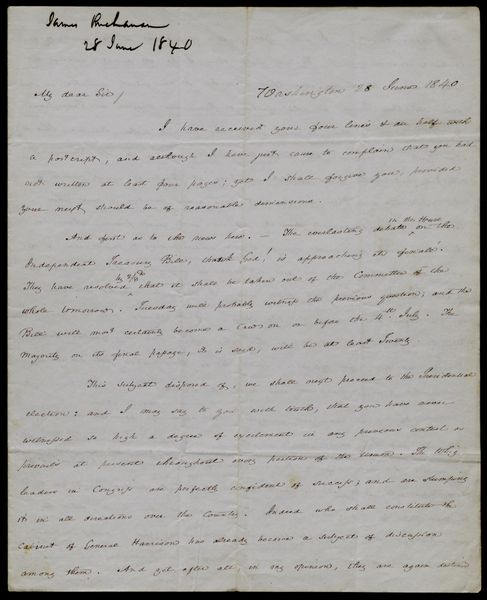 James Buchanan
28 June 1840
Washington 28 June 1840
My dear Sir,
I have received your four lines & an half with
a postscript, and although I have just cause to complain that you had
not written at least four pages; yet I shall forgive you, provided
your next should be of reasonable dimensions.
And first as to the news here. — The everlasting debate in the House on the
Independent Treasury Bill, thank God! is approaching its finale.
They have resolved by that it shall be taken out of the Committee of the
whole tomorrow. Tuesday will probably witness the previous question; and the
Bill will most certainly become a law on or before the 4th July. The
majority on its final passage, it is said, will be at least Twenty
This subject disposed of, we shall next proceed to the Presidential
election: and I may say to you with truth, that you have never
witnessed so high a degree of excitement in any previous contest as
prevails at present throughout every portion of the Union. The Whig
leaders in Congress are perfectly confident of success; and are stumping
it in all directions over the Country. Indeed who shall constitute the
Cabinet of General Harrison has already become a subject of discussion
among them. And yet after all in my opinion, they are again